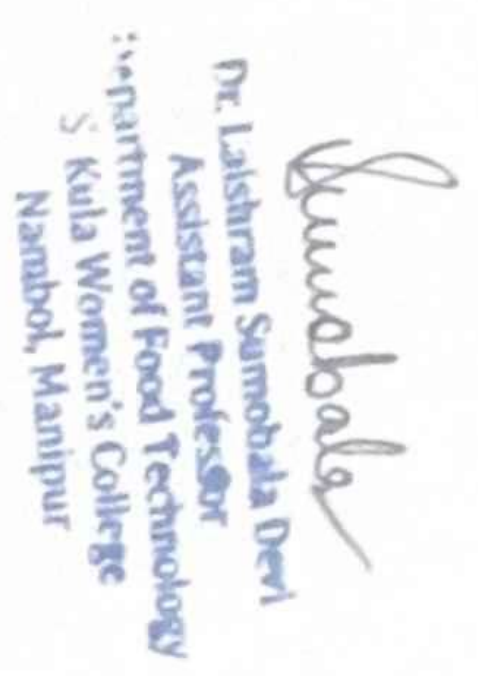 Sumobala
Dr. Laishram Sumobala Devi
Assistant Professor
Department of Food Technology
S Kula Women's College
Nambol, Manipur